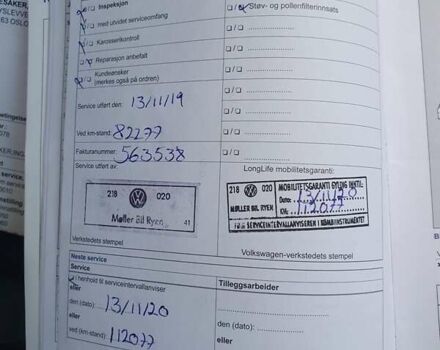 Inspeksjon
Støv- og pollenfilterinnsats
med utvidet serviceomfang
Karosserikontroll
Reparasjon anbefalt
Kundeønsker
(merkes også på ordren)
Service utført den: 13/11/19
Ved km-stand: 82277
Fakturanummer: 563538
Service utført av:
LongLife mobilitetsgaranti:
218 020
Møller Bil Ryen
41
218 020
MØLLER BIL RYEN
MOBILITETSGARANTI GYLDIG INNTIL:
Dato: 13/11/20
KM: 112077
Verkstedets stempel
Volkswagen-verkstedets stempel
Neste service
Service
i henhold til serviceintervallanviser
Tilleggsarbeider
eller
den (dato): 13/11/20
eller
ved (km-stand): 112077
den (dato):
eller